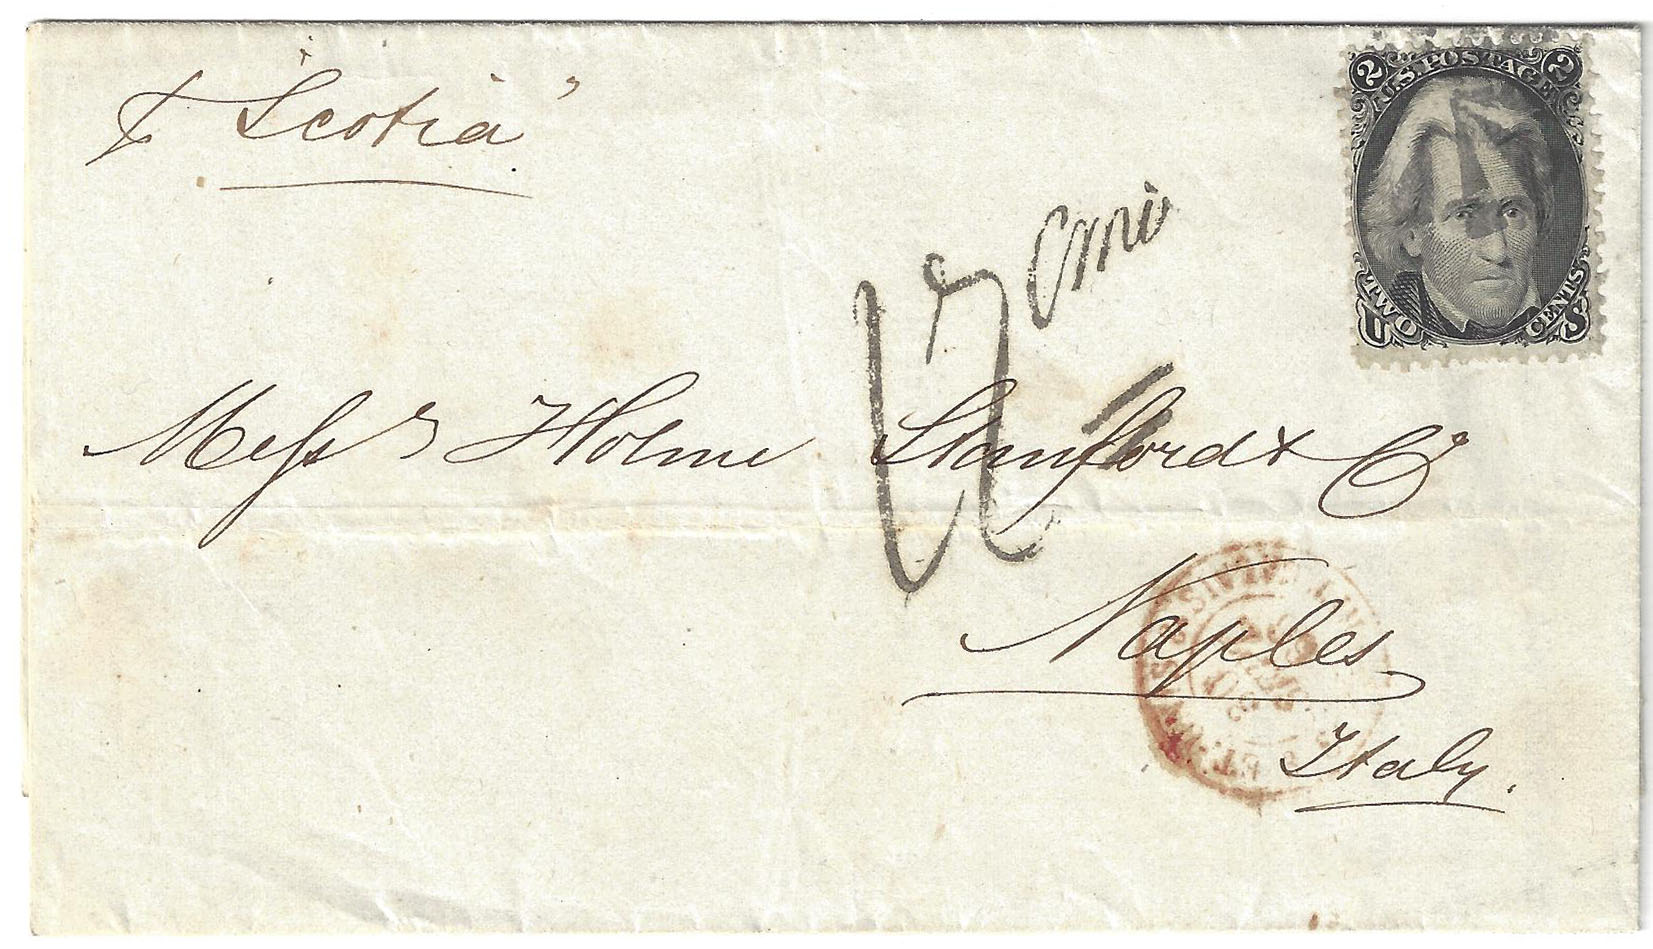 ℘ "Scotia"
2 U.S. POSTAGE 2
U TWO CENTS S
Mess^rs Holme Stanford & C^o
Naples
Italy.